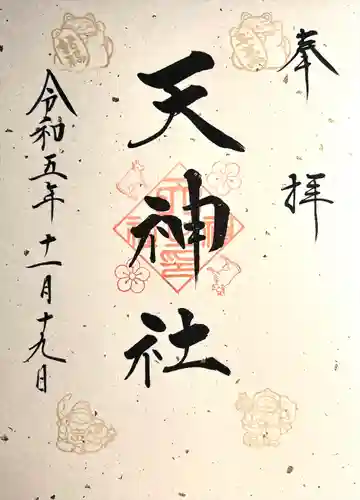 奉拝
天神社
令和五年十一月十九日